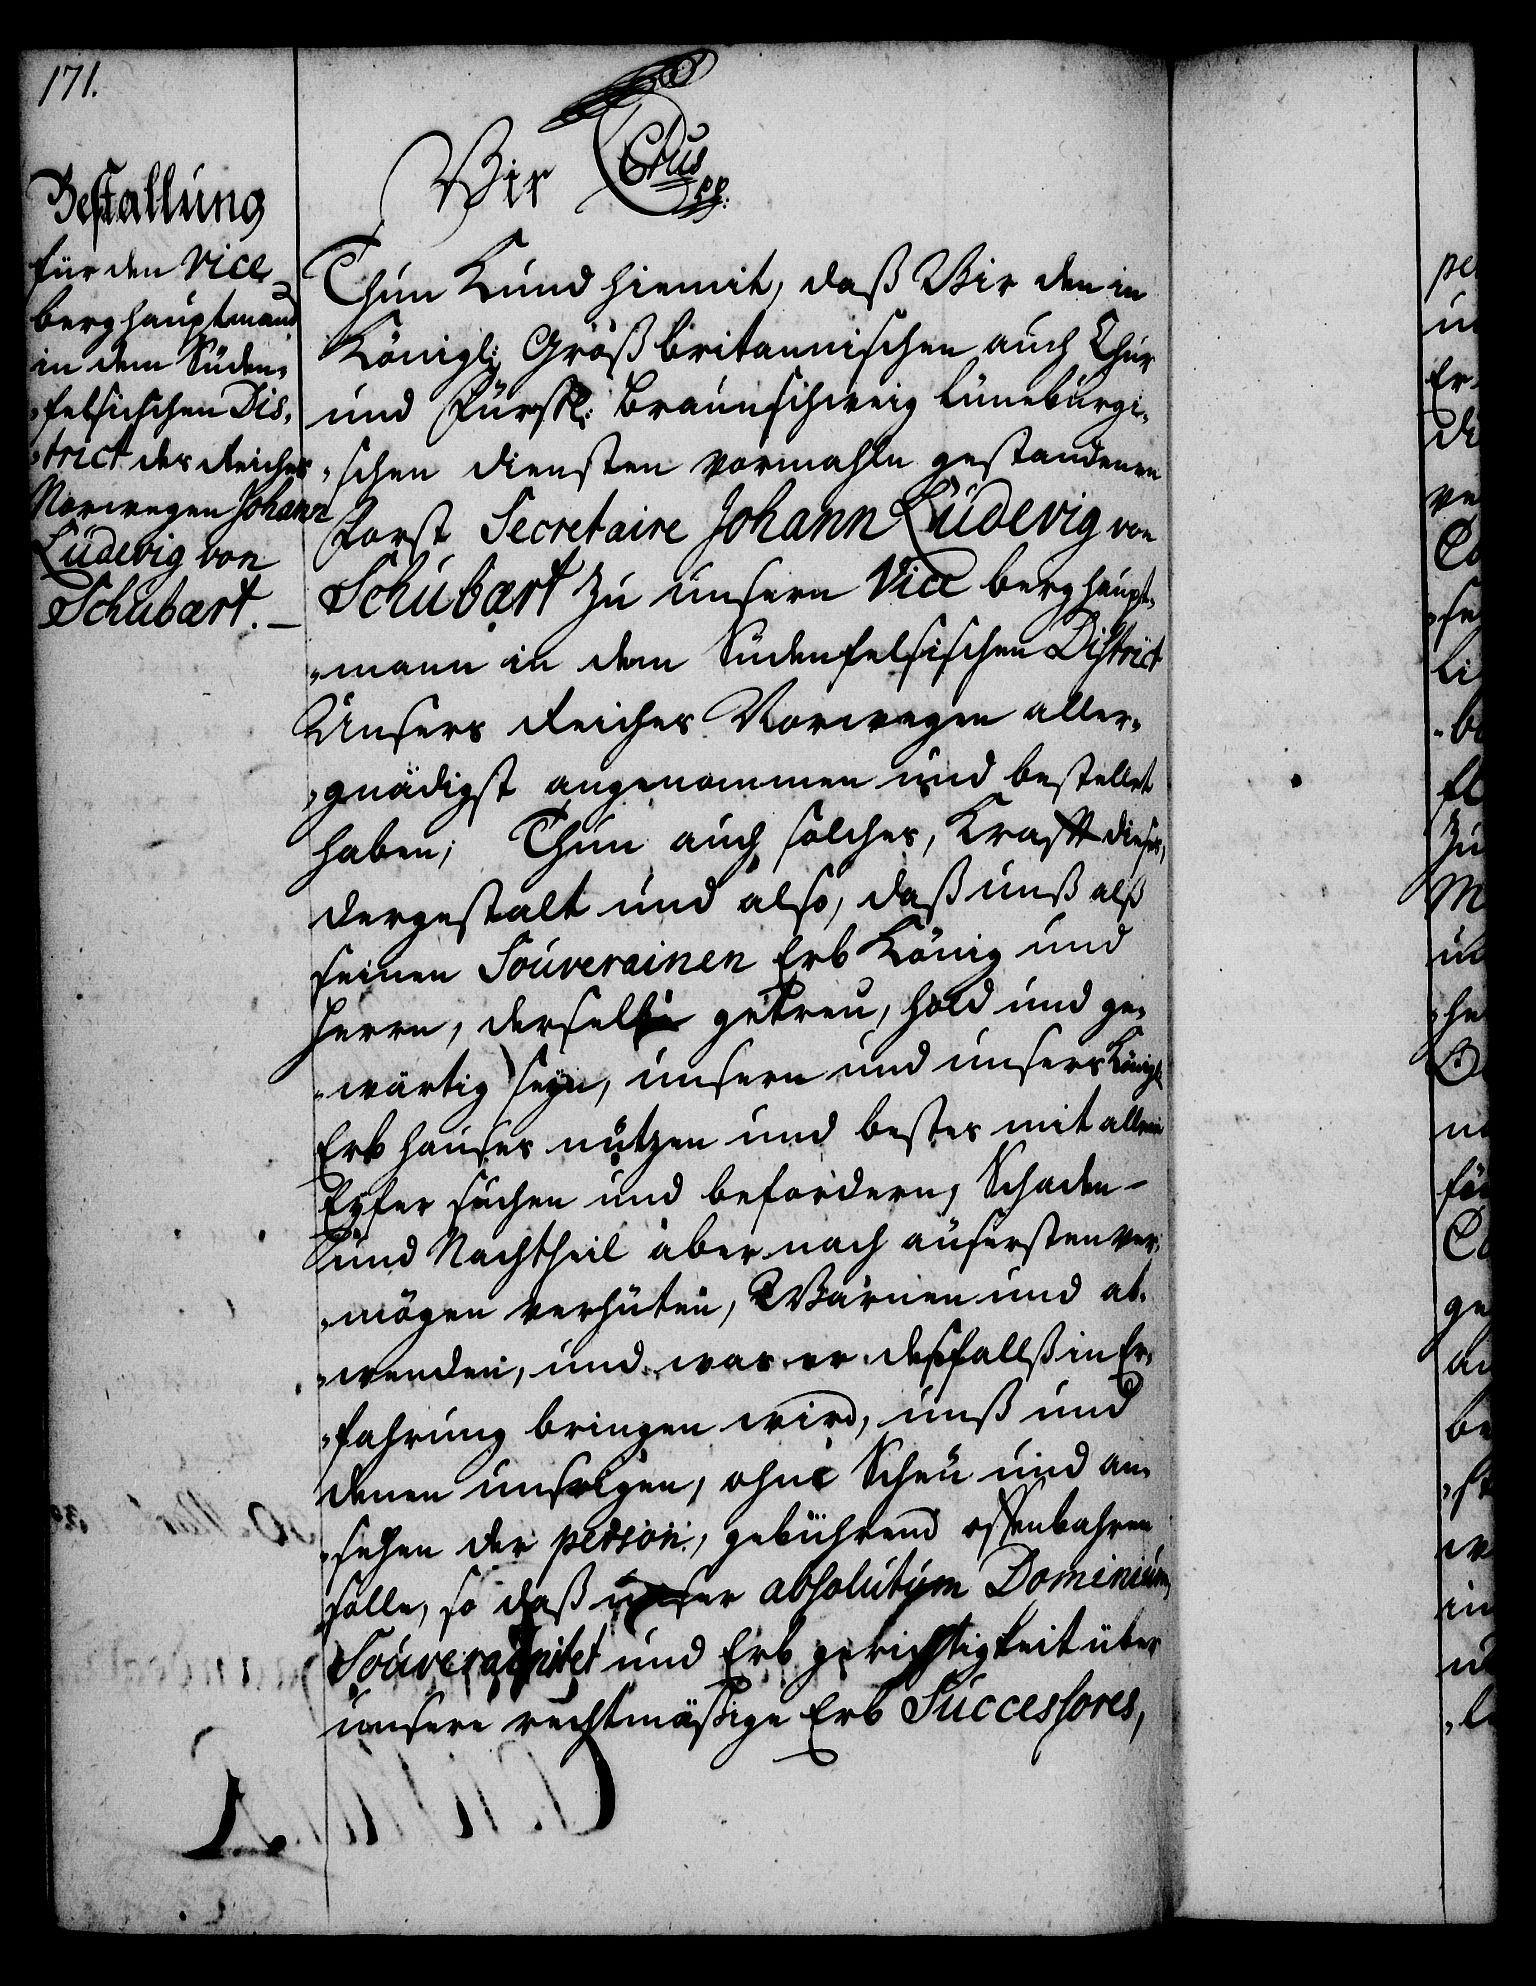 171.
Bestallung
für den Vice
berghauptmand
in dem Süden„
„felsischen Dis„
„trict des Reiches
Norwegen Johann
Ludevig von
Schubært.
Wir CVIus pp:
Thun Kund hiemit, daß Wir den in
Königl: Größbritannischen auch Chur
und Fürstl: Braunschweig Lüneburgi„
„schen diensten vormahln gestandenen
Forst Secretaire Johann Ludevig von
Schubært zu unsern Vice berghaupt„
„mann in dem Südenfelsischen District
Unsers Reiches Norwegen aller„
„gnädigst angenommen und bestellet
haben; Thun auch solches, Krafft dieses,
dergestalt und also, daß unß alß
seinen Souverainen Erb König und
Herrn, derselbe getreu, hold und ge„
„wärtig seyn, unsern und unsers Königl
Erb hauses nutzen und bestes mit allem
Eyfer suchen und befordern, Schaden
und Nachtheil aber nach äusersten ver„
„mögen verhüten, Warnen und ab„
„wenden, und was er desfallß in Er„
„fahrung bringen wird, unß und
denen unsrigen, ohne Scheu und an„
„sehen der person, gebührend offenbahren
solle, so daß unser absolutum Dominium,
Souverainitet und Erb gerichtigkeit über
unsere rechtmäßige Erb Successores,